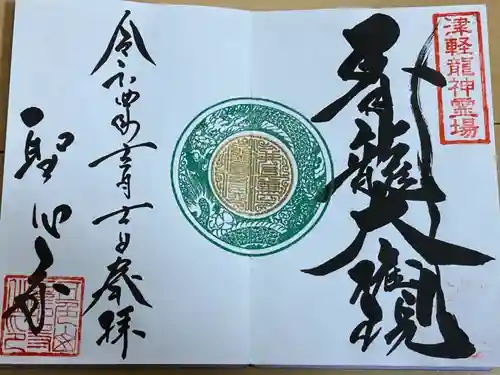 津軽龍神霊場
青龍大権現
令和四年 月 日 奉拝
聖心寺